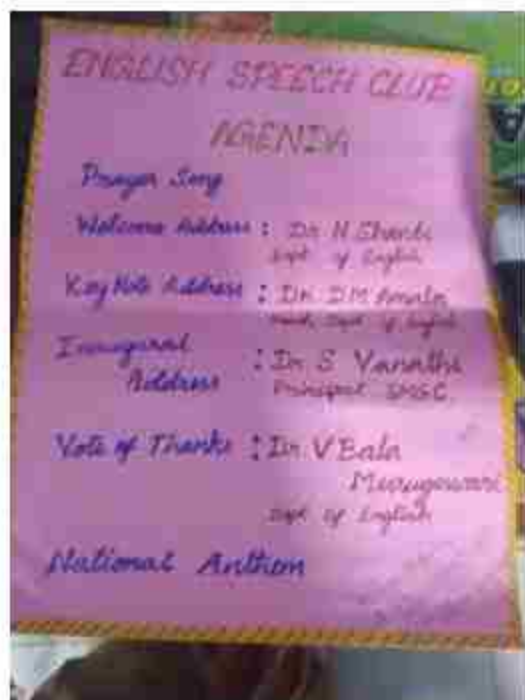 ENGLISH SPEECH CLUB
AGENDA
Prayer Song
Welcome Address : Dr N Shanti
Dept of English
Key Note Address : Dr. D M Amala
Head, Dept of English
Inaugural
Address : Dr S Vanathi
Principal
Vote of Thanks : Dr. V Bala
Dept of English
National Anthem